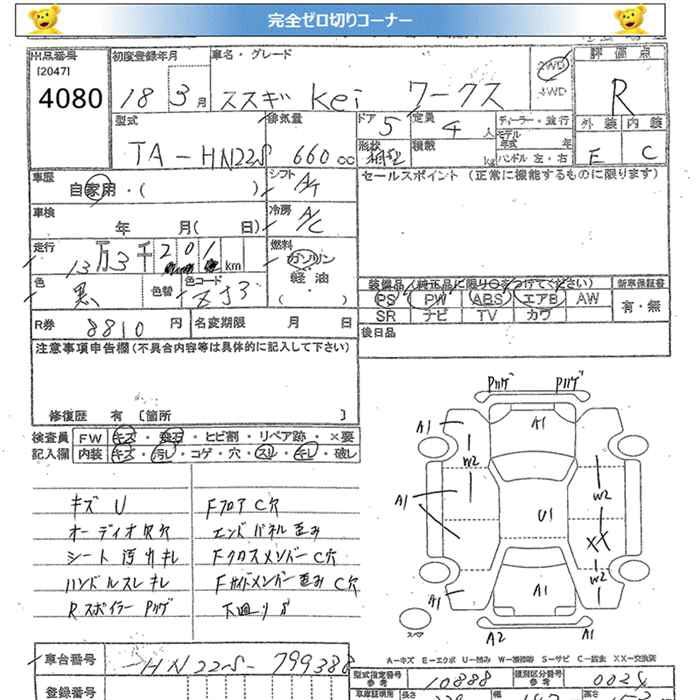 完全ゼロ切りコーナー
出品番号 初度登録年月 車名・グレード 評価点
[2047]
4080 18 3月 スズキ Kei ワークス 2WD R
4WD
型式 排気量 ドア 5 定員 4人 ディーラー・並行 外装 内装
TA-HN22S 660cc 形状 積載 kg モデル年式 年 E C
ハンドル 左・右
車歴 自家用・( ) シフト A/T セールスポイント (正常に機能するものに限ります)
車検 年 月( 日) 冷房 A/C
走行 13万3千201km 燃料 ガソリン
軽油
( )
色 黒 色替 色コード ZJ3 装備品(純正品に限り○をつけてください) 新車保証書
PS PW ABS エアB AW 有・無
SR ナビ TV カワ
R券 8810円 名変期限 月 日 後日品
注意事項申告欄(不具合内容等は具体的に記入して下さい)
修復歴 有 [箇所 ]
検査員 FW キズ・飛石・ヒビ割・リペア跡・×要
記入欄 内装 キズ・汚レ・コゲ・穴・スレ・キレ・破レ
キズ U FフロアC穴
オーディオ欠穴 エンドパネル歪み
シート汚れキレ FクロスメンバーC穴
ハンドルスレキレ Fサイドメンバー歪みC穴
RスポイラーPハゲ 下廻りS
Pハゲ Pハゲ
A1 A1
W2 W2
A1 U1
XX
W2
A1 A1
スペア A2 A1
A-キズ E-エクボ U-凹み W-補修跡 S-サビ C-腐食 XX-交換済
車台番号 HN22S-799386
型式指定番号 10888 類別区分番号 0028
参考 参考
登録番号 車庫証明用 長さ 幅 高さ